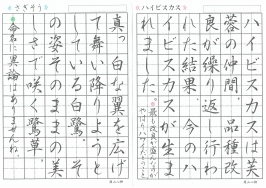 ハイビスカス
ハイビスカスは芙
蓉の仲間。品種改
良が繰り返し行わ
れた結果、今のハ
イビスカスが生ま
れました。
さぎそう
真っ白な翼を広げ
て舞い降りようと
している白鷺。そ
の姿そのままの美
しさで咲く鷺草。
命名に異論はありませんね。